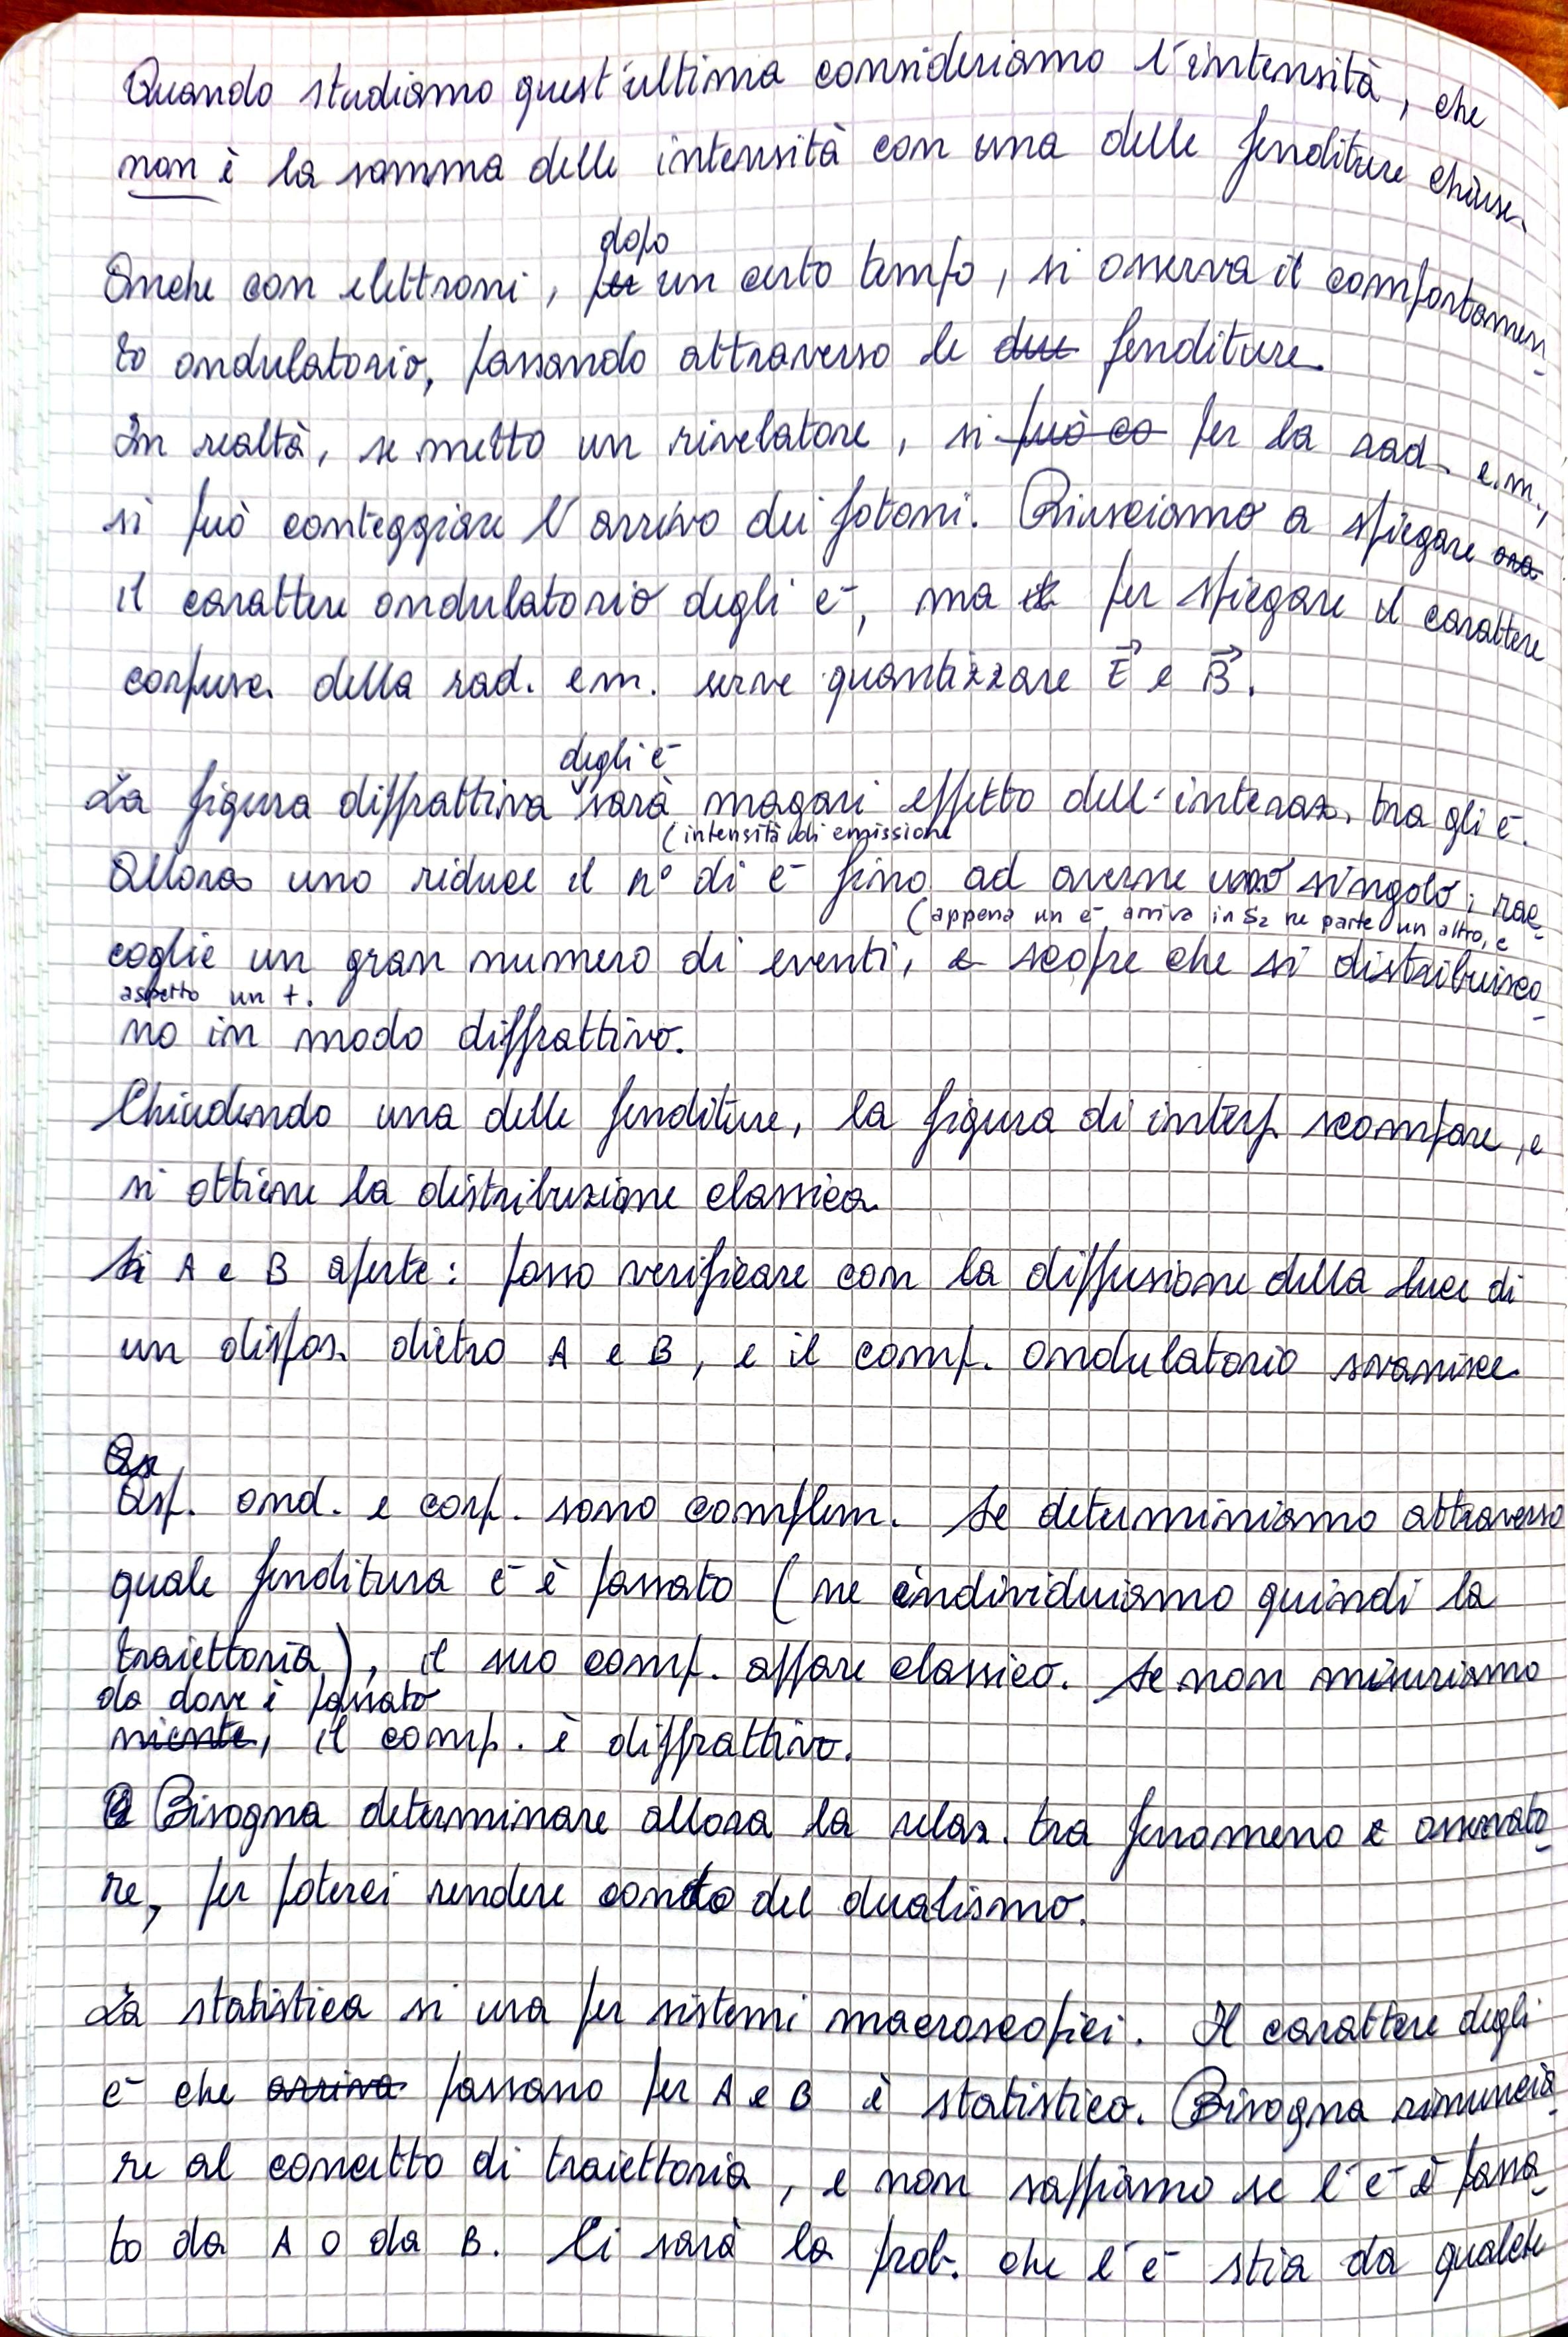 Quando studiamo quest'ultima consideriamo l'intensità, che
non è la somma delle intensità con una delle fenditure chiuse.
dopo
Anche con elettroni, per un certo tempo, si osserva il comportamen-
to ondulatorio, passando attraverso le due fenditure.
In realtà, se metto un rivelatore, si può co per la rad. e.m.,
si può conteggiare l'arrivo dei fotoni. Riusciamo a spiegare ora
il carattere ondulatorio degli e⁻, ma il per spiegare il carattere
corpusc. della rad. e.m. serve quantizzare E⃗ e B⃗.
degli e⁻
La figura diffrattiva sarà magari effetto dell'interaz. tra gli e⁻.
(intensità di emissione
Allora uno riduce il n° di e⁻ fino ad averne uno singolo; rac-
(appena un e⁻ arriva in S2 ne parte un altro, e
coglie un gran numero di eventi, e scopre che si distribuisco-
aspetto un t.
no in modo diffrattivo.
Chiudendo una delle fenditure, la figura di interf. scompare, e
si ottiene la distribuzione classica.
Se A e B aperte: posso verificare con la diffusione della luce di
un dispos. dietro A e B, e il comp. ondulatorio svanisce.
Asp. ond. e corp. sono complem. Se determiniamo attraverso
quale fenditura e⁻ è passato (ne individuiamo quindi la
traiettoria), il suo comp. appare classico. Se non misuriamo
da dove è passato
niente, il comp. è diffrattivo.
Bisogna determinare allora la relaz. tra fenomeno e osservato-
re, per poterci rendere conto del dualismo.
La statistica si usa per sistemi macroscopici. Il carattere degli
e⁻ che arriva passano per A e B è statistico. Bisogna rinuncia-
re al concetto di traiettoria, e non sappiamo se l'e⁻ è passa-
to da A o da B. Ci sarà la prob. che l'e⁻ stia da qualche